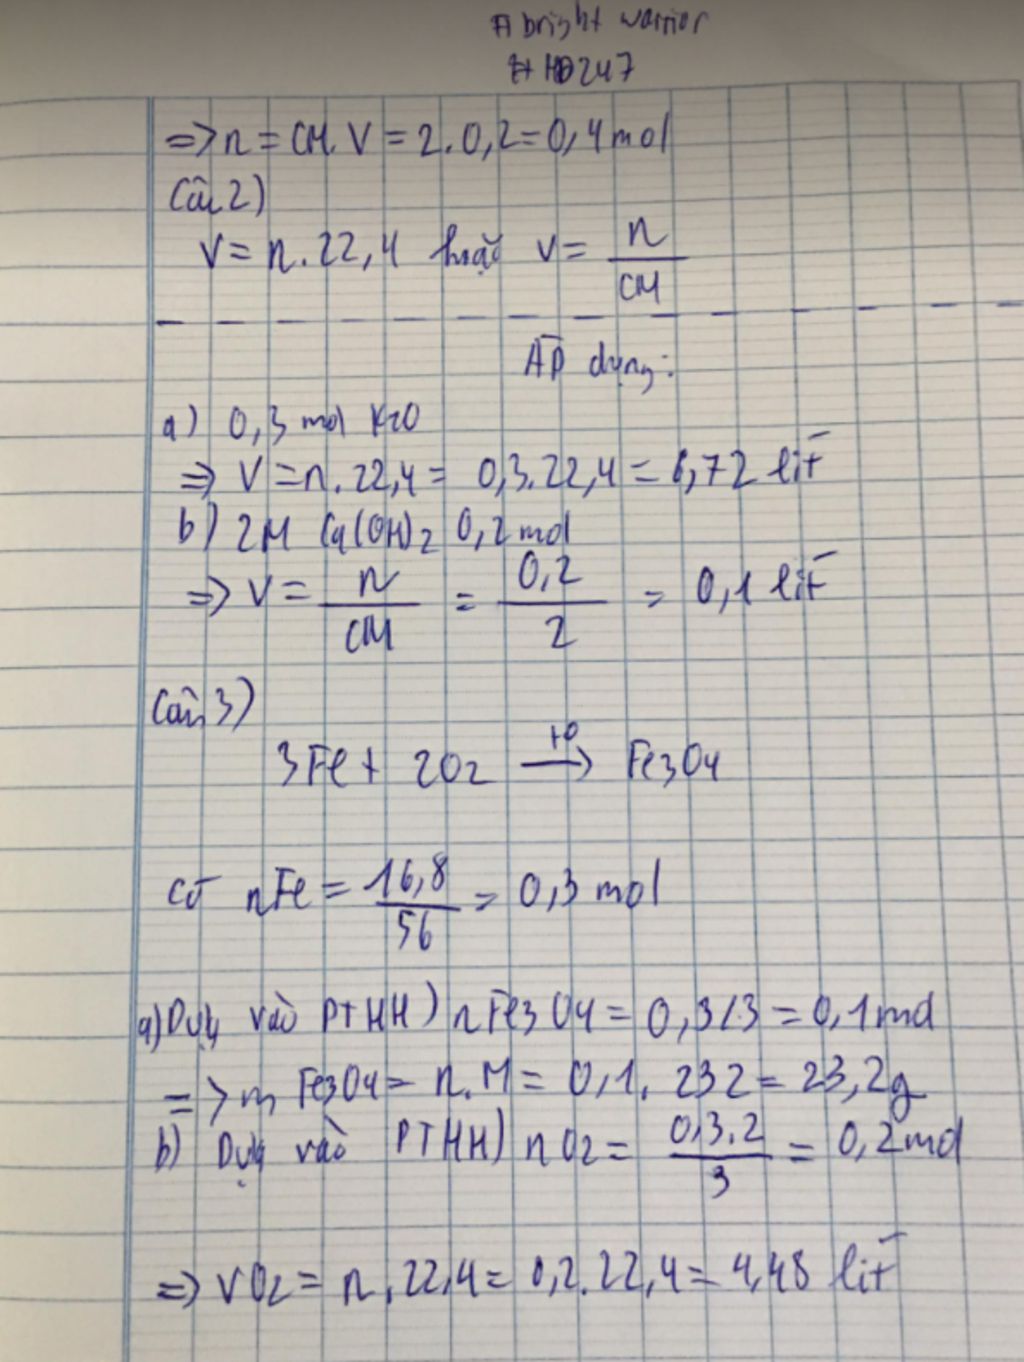 # bright warrior
# HD247
=> n = CM. V = 2. 0,2 = 0,4 mol
Câu 2)
V = n. 22,4 hoặc V = n/CM
Áp dụng:
a) 0,3 mol K2O
=> V = n. 22,4 = 0,3. 22,4 = 6,72 lít
b) 2M Ca(OH)2 0,2 mol
=> V = n/CM = 0,2/2 = 0,1 lít
Câu 3)
3Fe + 2O2 t0→ Fe3O4
Có nFe = 16,8/56 = 0,3 mol
a) Dựa vào PTHH) nFe3O4 = 0,3/3 = 0,1 mol
=> m Fe3O4 = n. M = 0,1. 232 = 23,2g
b) Dựa vào PTHH) nO2 = 0,3.2/3 = 0,2 mol
=> VO2 = n. 22,4 = 0,2. 22,4 = 4,48 lít